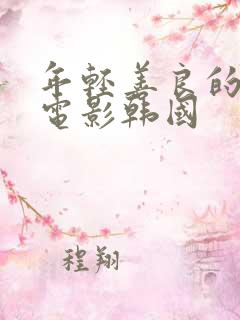 年輕善良的
電影韩国
程翔